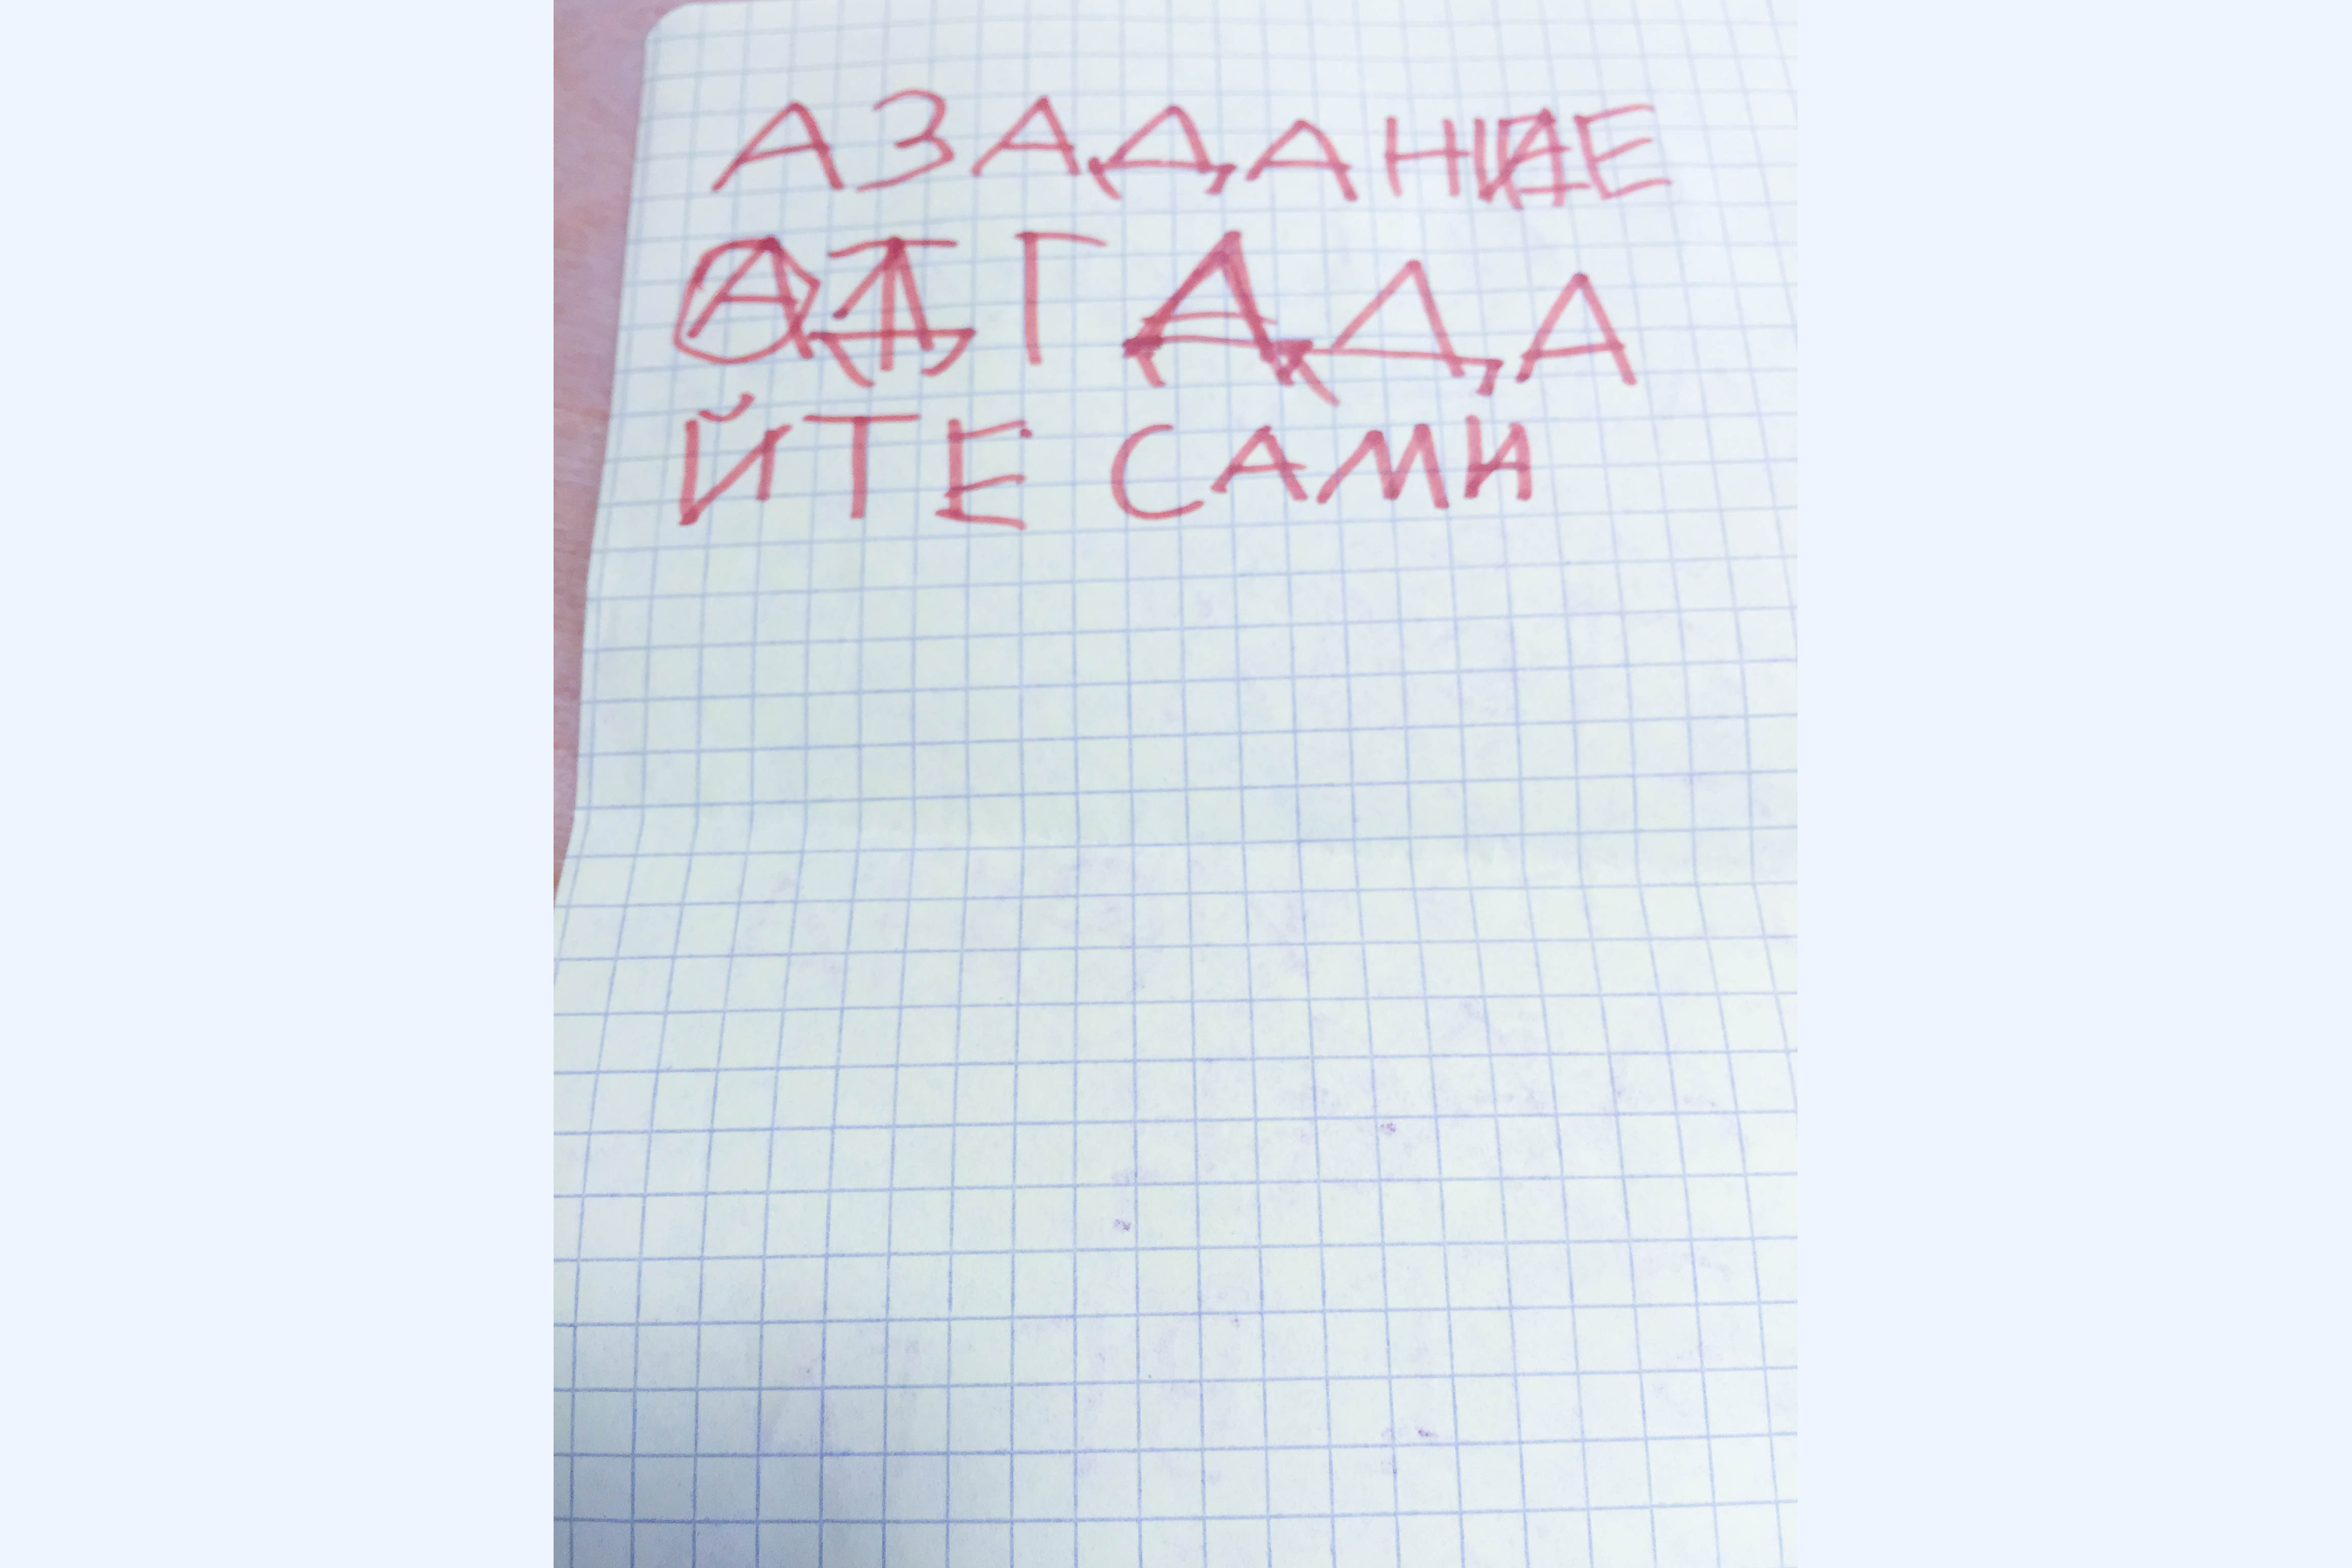 А ЗАДАНИЕ
ОТГАДА
ЙТЕ САМИ